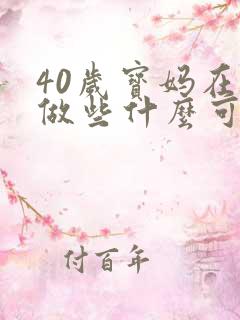 40歲寶妈在
做些什麼可
付百年